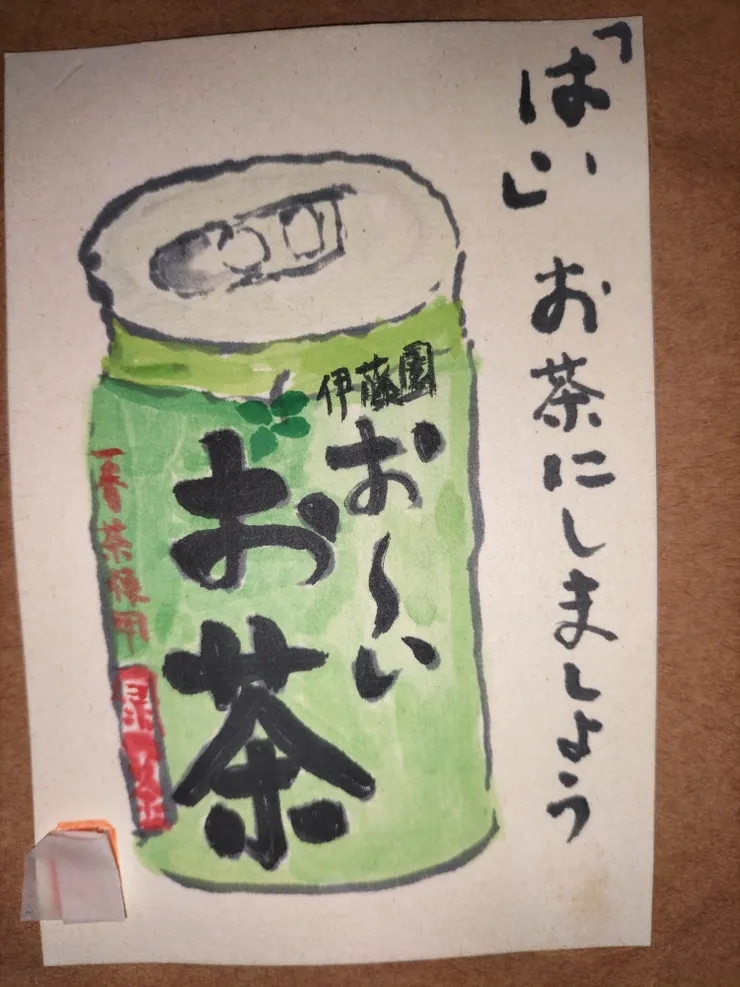 「はい」お茶にしましょう
伊藤園
お～い
お茶
一番茶使用